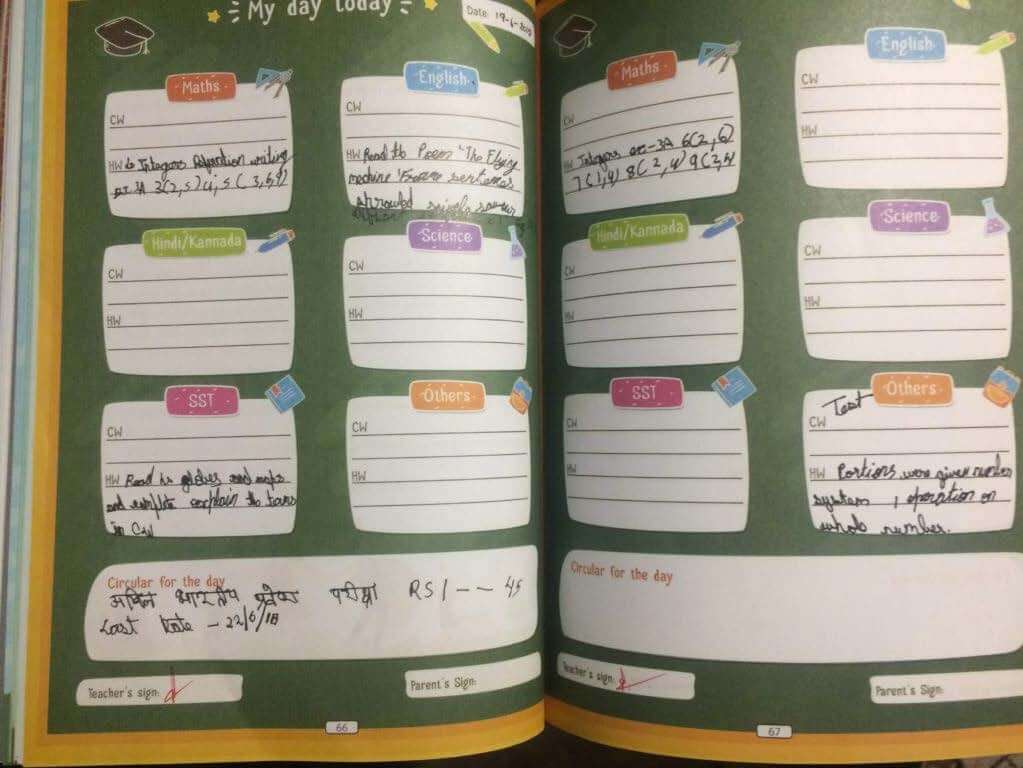 My day today
Date: 19-6-20
Maths
CW
HW Integers writing
ex 3A 3(2,5) 4, 5 (3,
English
CW
HW Read the Poem "The Flying
machine" Frame sentences
Hindi/Kannada
CW
HW
Science
CW
HW
SST
CW
HW Read globes and maps
and complete explain the terms
in CW
Others
CW
HW
Circular for the day
भारतीय परीक्षा RS 1 -- 45
Last Date - 22/6/18
Teacher's sign:
Parent's Sign:
66
Maths
CW
HW Integers ex-3A 6(2,6)
7(1,4) 8(2,4) 9(2,4
English
CW
HW
Hindi/Kannada
CW
HW
Science
CW
HW
SST
CW
HW
Others
Test
CW
HW Portions were given number
system, operation on
whole number.
Circular for the day
Teacher's sign:
Parent's Sign:
67